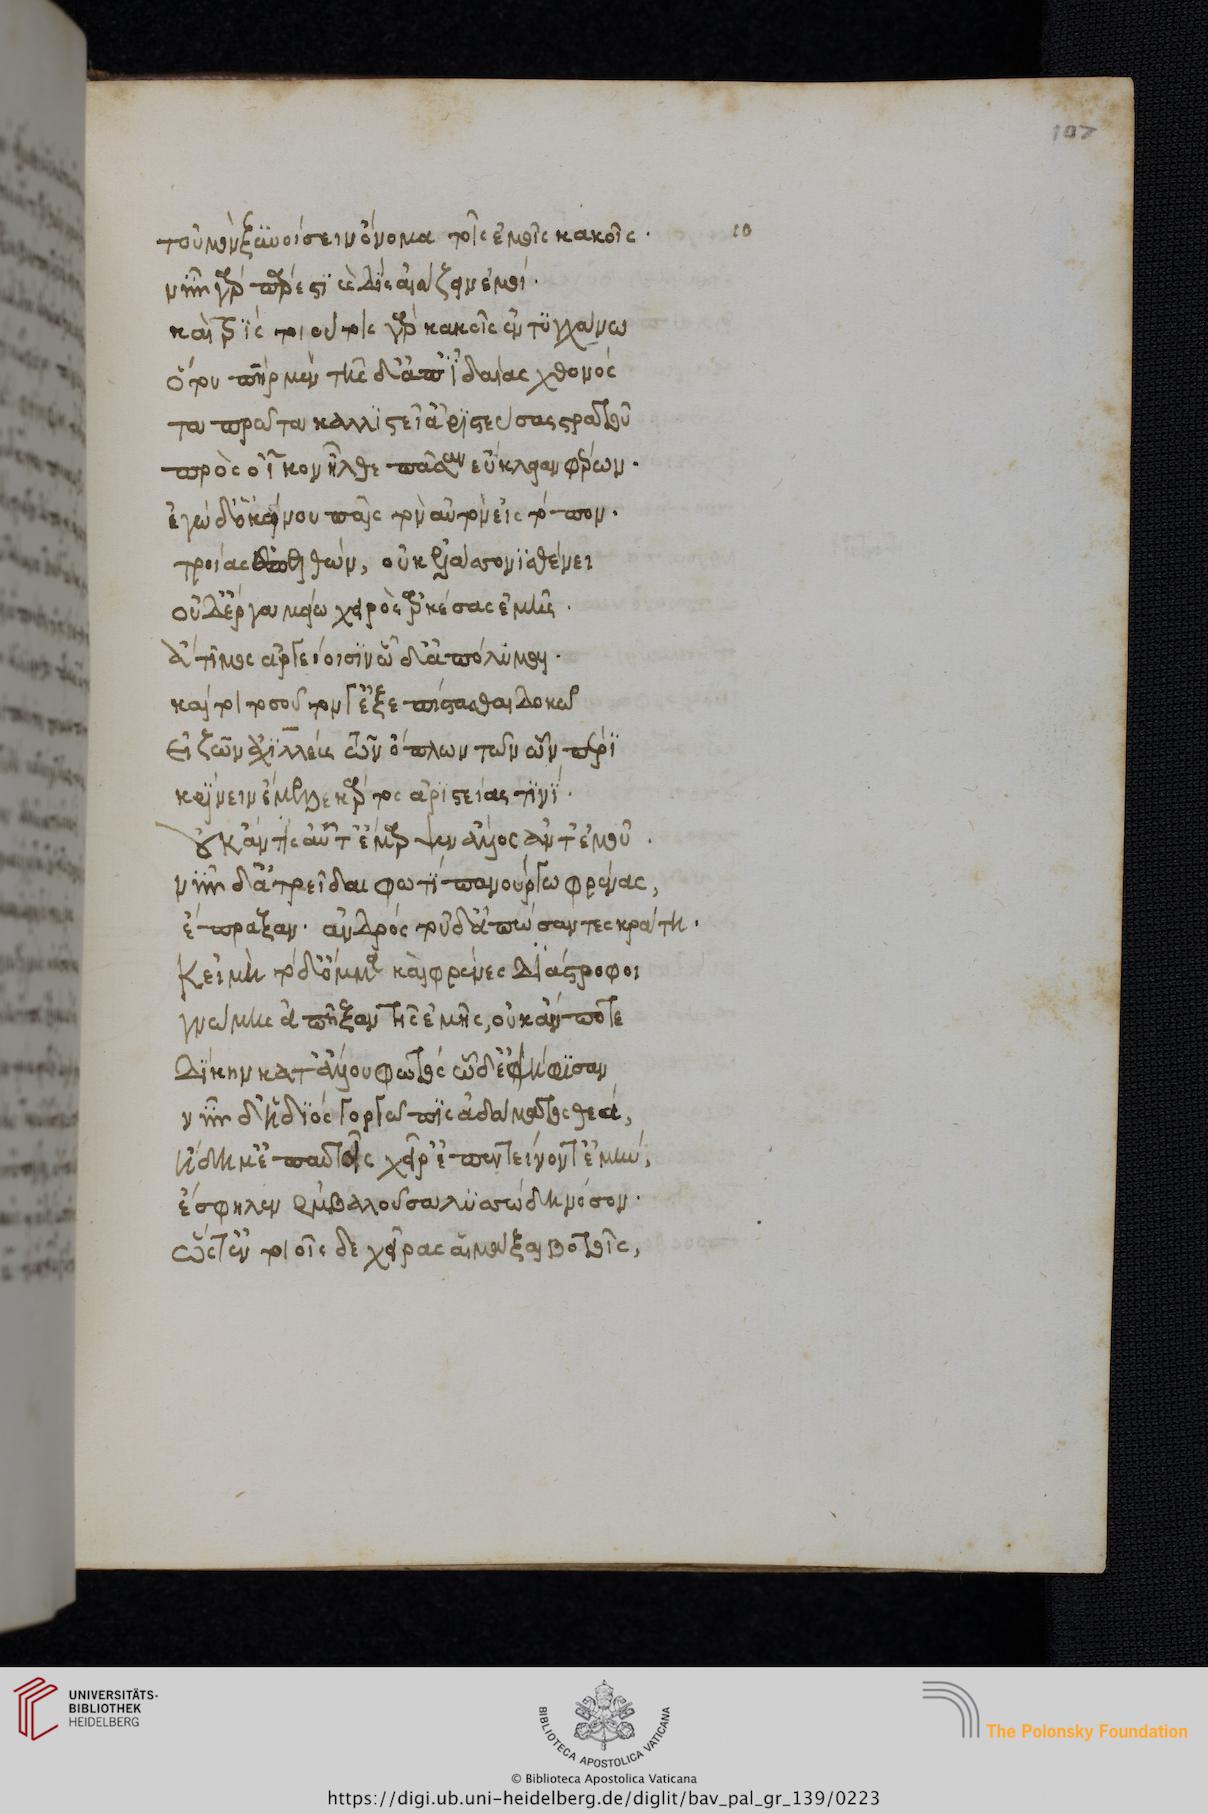 107
τοὐμὸν ξυνοίσειν ὄνομα τοῖς ἐμοῖς κακοῖς·
νῦν γὰρ πάρεστι καὶ δὶς αἰάζειν ἐμοί·
καὶ τρίς τοιούτοις γὰρ κακοῖς ἐντυγχάνω
ὅτου πατὴρ μὲν τῆσδ' ἀπ' ἰδαίας χθονός
τα πρῶτα καλλιστεῖ ἀριστεύσας στρατοῦ
πρὸς οἶκον ἦλθε πᾶσαν εὔκλειαν φέρων·
ἐγὼ δ' ὁ κείνου παῖς τὸν αὐτὸν εἰς τόπον·
τροίας ἐπελθών, οὐκ ἐλάσσονι σθένει
οὐδ' ἔργα μείω χειρὸς ἀρκέσας ἐμῆς·
ἄτιμος ἀργείοισιν ὧδ' ἀπόλυμαι·
καίτοι τοσοῦτον γ' ἐξεπίστασθαι δοκῶ
Εἰ ζῶν ἀχιλλεὺς τῶν ὅπλων τῶν ὧν πέρι
κρίνειν ἔμελλε κράτος ἀριστείας τινί·
οὐκ ἄν τις αὔτ' ἔμαρψεν ἄλλος ἀντ' ἐμοῦ·
νῦν δ' ἀτρεῖδαι φωτί πανούργω φρένας,
ἔπραξαν· ἀνδρός τοῦδ' ἀπώσαντες κράτη·
Κεἰ μὴ τόδ' ὄμμα καὶ φρένες διάστροφοι
γνώμης ἀπῆξαν τῆς ἐμῆς, οὐκ ἄν ποτε
Δίκην κατ' ἄλλου φωτός ὧδ' ἐψήφισαν
νῦν δ' ἡ διός γοργῶπις ἀδάματος θεά,
ἤδη μ' ἐπ' αὐτοῖς χεῖρ' ἐπεντείνοντ' ἐμήν,
ἔσφηλεν ἐμβαλοῦσα λυσσώδη νόσον·
ὥστ' ἐν τοιοῖσδε χεῖρας αἱμάξαι βοτοῖς,
UNIVERSITÄTS-
BIBLIOTHEK
HEIDELBERG
BIBLIOTECA APOSTOLICA VATICANA
The Polonsky Foundation
© Biblioteca Apostolica Vaticana
https://digi.ub.uni-heidelberg.de/diglit/bav_pal_gr_139/0223